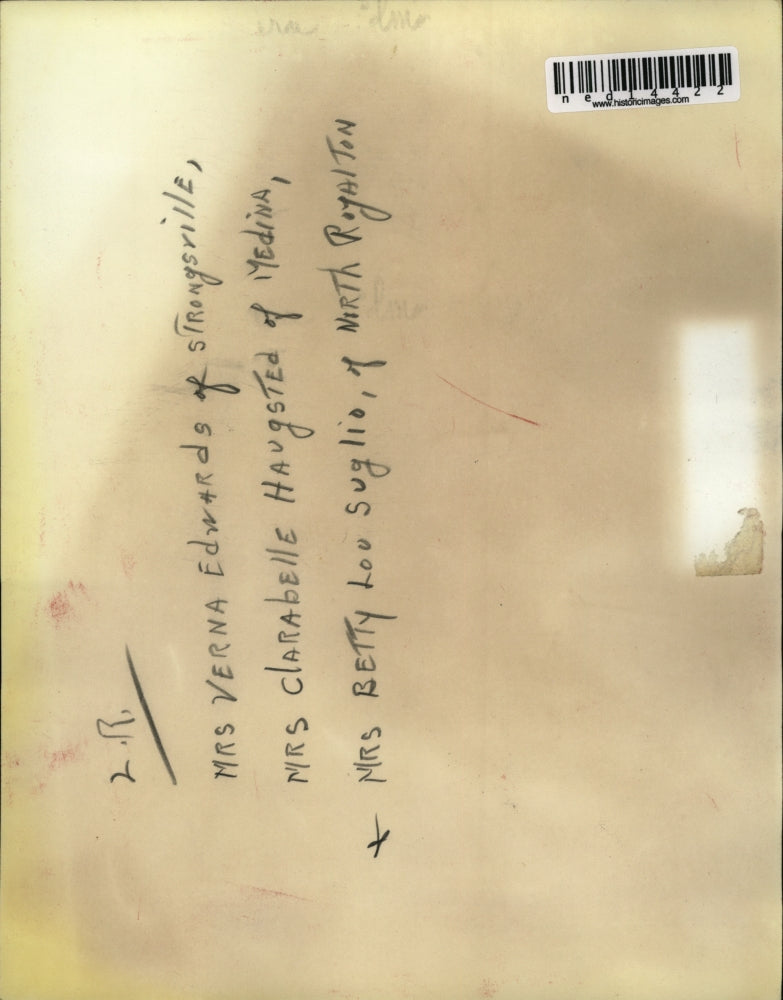 L.R.
MRS VERNA EdWARds of STRONgsville,
MRS ClARAbelle HAUgSTEd of MEdiNA,
+ MRS BETTY Lou Suglio, of NORTH RoyAlTON
ned14422
www.historicimages.com